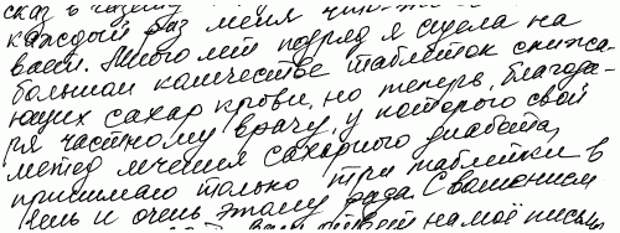 сказ в газету
каждый раз меня что-то
ваем. Много лет подряд я сидела на
большом количестве таблеток снижа-
ющих сахар крови, но теперь, благода-
ря частному врачу, у которого свой
метод лечения сахарного диабета,
принимаю только три таблетки в
день и очень этому рада. С вашением
на моё письмо